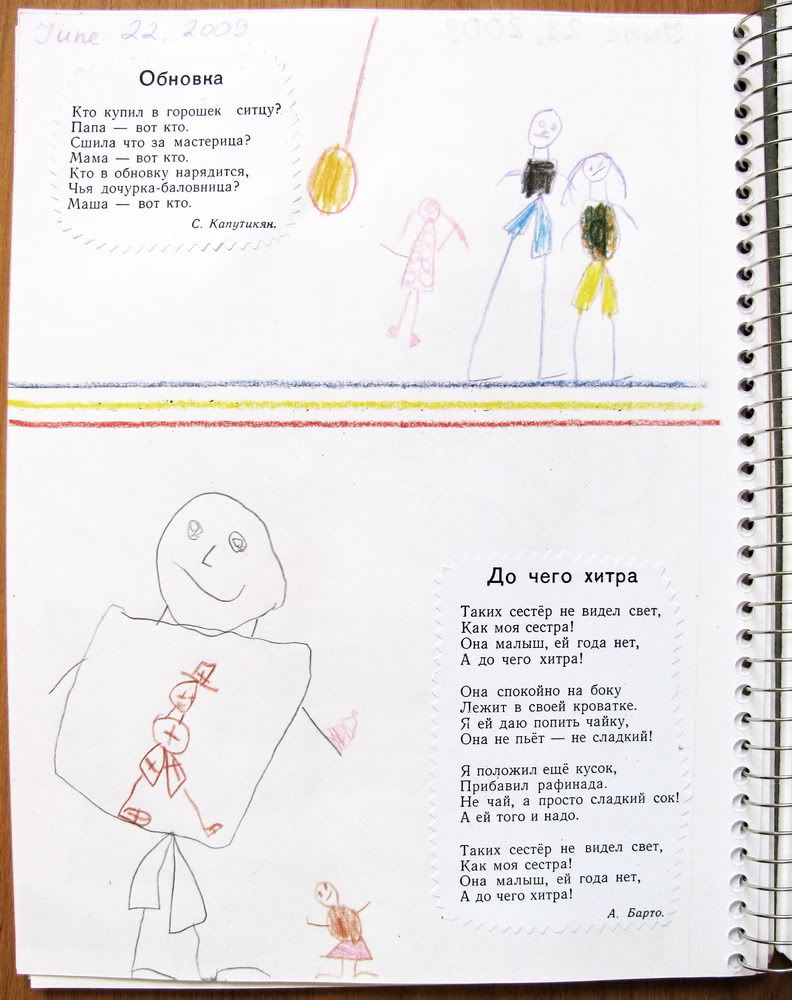 June 22. 2009
Обновка
Кто купил в горошек ситцу?
Папа — вот кто.
Сшила что за мастерица?
Мама — вот кто.
Кто в обновку нарядится,
Чья дочурка-баловница?
Маша — вот кто.
С. Капутикян.
До чего хитра
Таких сестёр не видел свет,
Как моя сестра!
Она малыш, ей года нет,
А до чего хитра!
Она спокойно на боку
Лежит в своей кроватке.
Я ей даю попить чайку,
Она не пьёт — не сладкий!
Я положил ещё кусок,
Прибавил рафинада.
Не чай, а просто сладкий сок!
А ей того и надо.
Таких сестёр не видел свет,
Как моя сестра!
Она малыш, ей года нет,
А до чего хитра!
А. Барто.